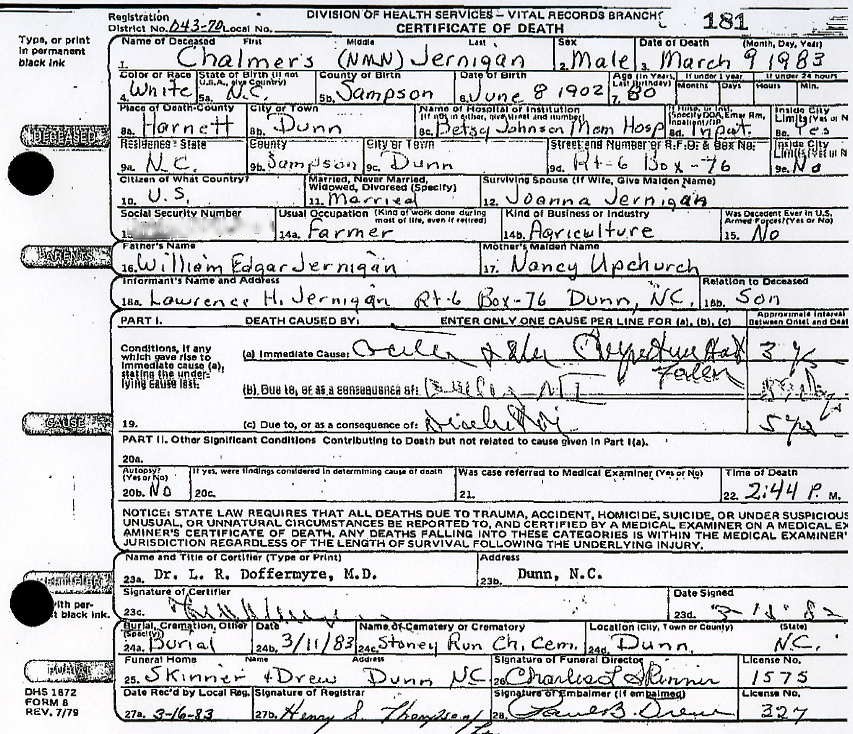 Registration DIVISION OF HEALTH SERVICES – VITAL RECORDS BRANCH
District No. D43-70 Local No. CERTIFICATE OF DEATH 181
Type, or print in permanent black ink
Name of Deceased First Middle Last Sex Date of Death (Month, Day, Year)
1. Chalmer's (NMN) Jernigan 2. Male 3. March 9 1983
Color or Race State of Birth (If not U.S.A., give Country) County of Birth Date of Birth Age (In Years, Last Birthday) If under 1 year If under 24 hours
Months Days Hours Min.
4. White 5a. N.C. 5b. Sampson 6. June 8 1902 7. 80
Place of Death-County City or Town Name of Hospital or Institution (If not in either, give street and number) If Hosp. or Inst. (Specify DOA, Emer Rm, Inpatient/OP Inside City Limits (Yes or N
8a. Harnett 8b. Dunn 8c. Betsy Johnson Mem Hosp 8d. Inpat. 8e. Yes
DECEASED
Residence-State County City or Town Street and Number or R.F.D. & Box No. Inside City Limits (Yes or N
9a. N.C. 9b. Sampson 9c. Dunn 9d. Rt-6 Box-76 9e. No
Citizen of What Country? Married, Never Married, Widowed, Divorced (Specify) Surviving Spouse (If Wife, Give Maiden Name)
10. U.S. 11. Married 12. Joanna Jernigan
Social Security Number Usual Occupation (Kind of work done during most of life, even if retired) Kind of Business or Industry Was Decedent Ever in U.S. Armed Forces? (Yes or No)
14a. Farmer 14b. Agriculture 15. No
PARENTS
Father's Name Mother's Maiden Name
16. William Edgar Jernigan 17. Nancy Upchurch
Informant's Name and Address Relation to Deceased
18a. Lawrence H. Jernigan Rt-6 Box-76 Dunn, NC. 18b. Son
PART I. DEATH CAUSED BY: ENTER ONLY ONE CAUSE PER LINE FOR (a), (b), (c) Approximate Interval Between Onset and Deat
Conditions, if any which gave rise to immediate cause (a), stating the underlying cause last.
(a) Immediate Cause:
(b) Due to, or as a consequence of:
CAUSE
19. (c) Due to, or as a consequence of:
PART II. Other Significant Conditions Contributing to Death but not related to cause given in Part I(a).
20a.
Autopsy? (Yes or No) If yes, were findings considered in determining cause of death Was case referred to Medical Examiner (Yes or No) Time of Death
20b. No 20c. 21. 22. 2:44 P. M.
NOTICE: STATE LAW REQUIRES THAT ALL DEATHS DUE TO TRAUMA, ACCIDENT, HOMICIDE, SUICIDE, OR UNDER SUSPICIOUS
UNUSUAL, OR UNNATURAL CIRCUMSTANCES BE REPORTED TO, AND CERTIFIED BY A MEDICAL EXAMINER ON A MEDICAL EX
AMINER'S CERTIFICATE OF DEATH. ANY DEATHS FALLING INTO THESE CATEGORIES IS WITHIN THE MEDICAL EXAMINER'
JURISDICTION REGARDLESS OF THE LENGTH OF SURVIVAL FOLLOWING THE UNDERLYING INJURY.
Name and Title of Certifier (Type or Print) Address
23a. Dr. L. R. Doffermyre, M.D. 23b. Dunn, N.C.
Signature of Certifier Date Signed
23c. 23d.
with per-
t black ink.
Burial, Cremation, Other (Specify) Date Name of Cemetery or Crematory Location (City, Town or County) (State)
24a. Burial 24b. 3/11/83 24c. Stoney Run Ch. Cem. 24d. Dunn, N.C.
Funeral Home Name Address Signature of Funeral Director License No.
25. Skinner & Drew Dunn NC 26. Charles L Skinner 1575
DHS 1872
FORM 8
REV. 7/79
Date Rec'd by Local Reg. Signature of Registrar Signature of Embalmer (If embalmed) License No.
27a. 3-16-83 27b. Henry S. Thompson 28. Paul B. Drew 327